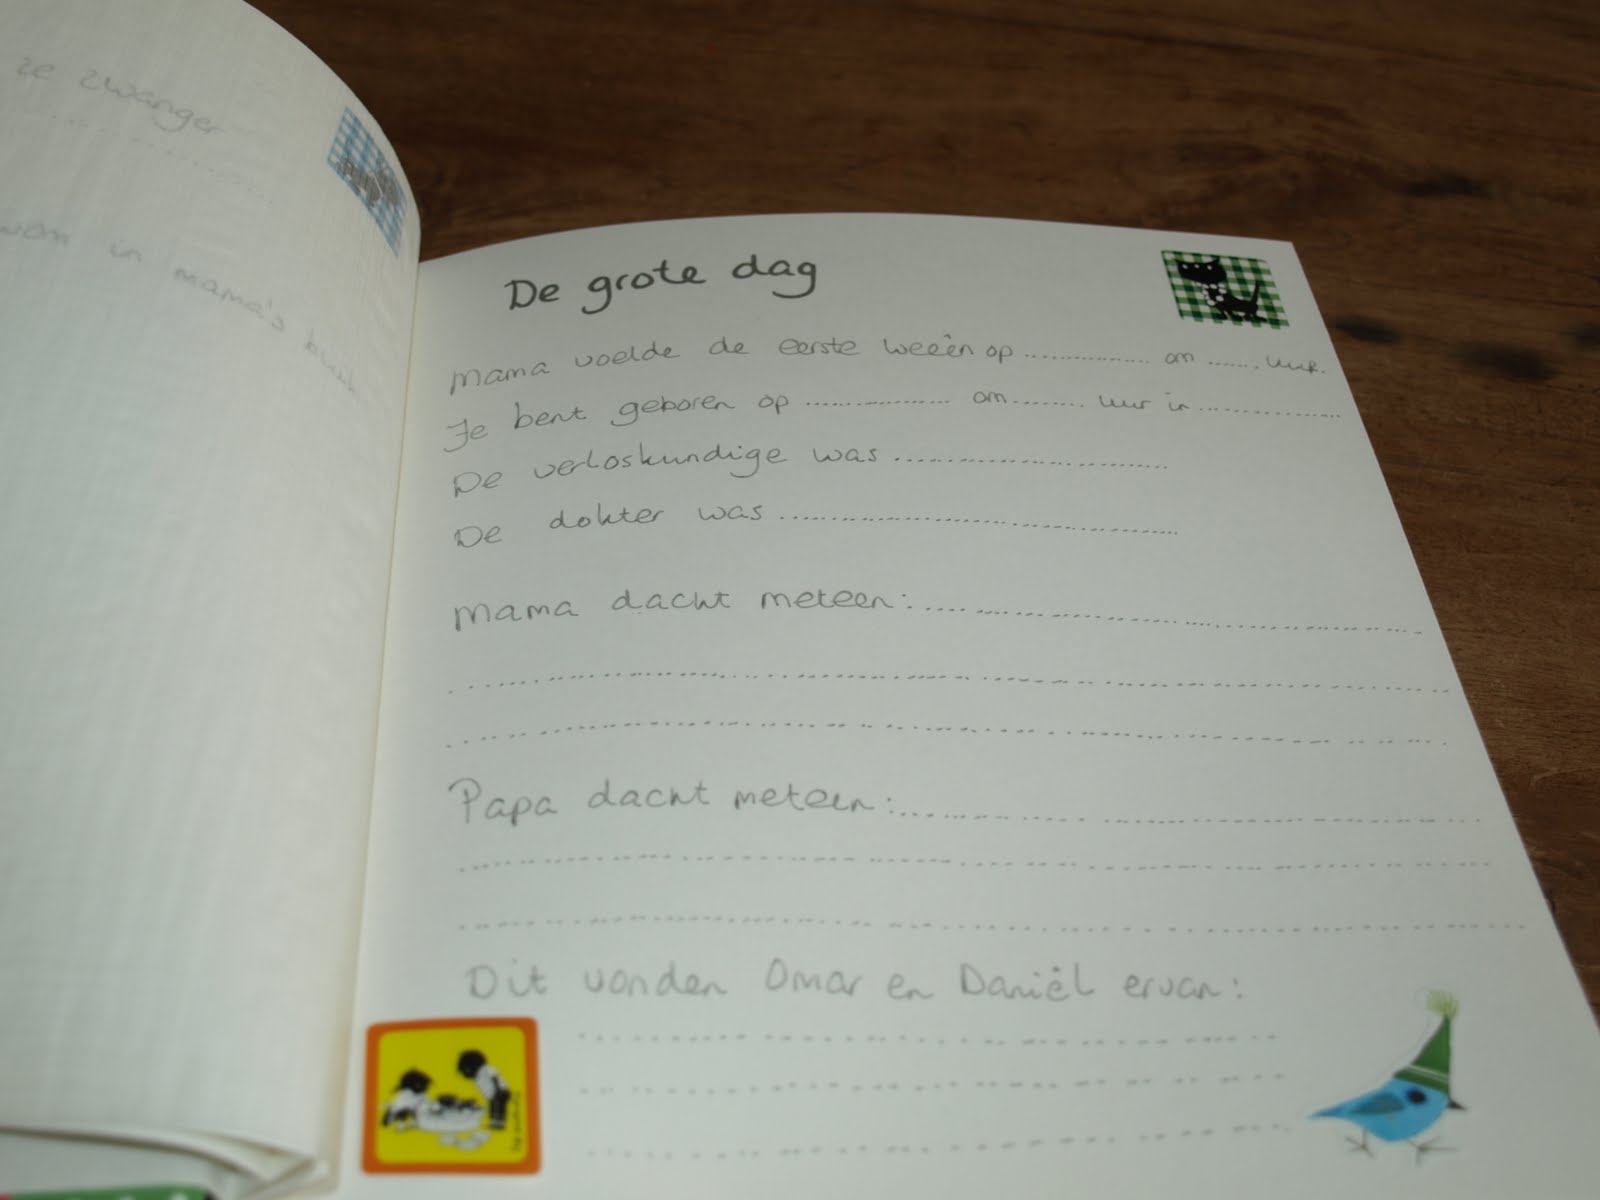 ze zwanger
in mama's buik
De grote dag
Mama voelde de eerste weeën op .................. om ........ uur.
Je bent geboren op .................. om ......... uur in ..................
De verloskundige was ..............................
De dokter was ........................................
Mama dacht meteen: ........................................
Papa dacht meteen: ........................................
Dit vonden Omar en Daniël ervan: